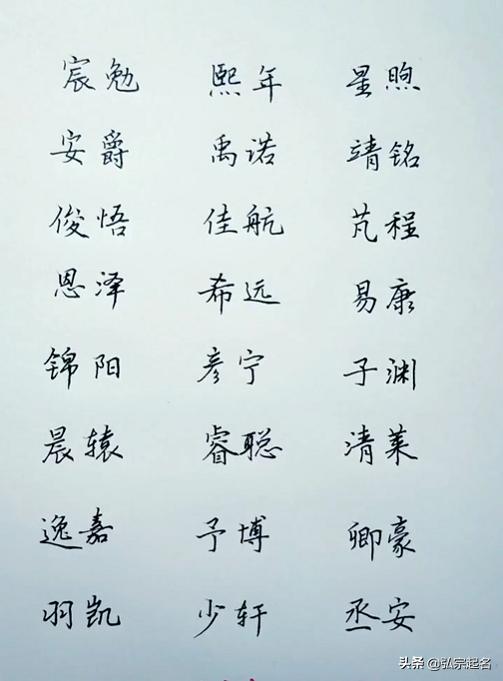 宸勉 熙年 星煦
安爵 禹诺 靖铭
俊悟 佳航 芃程
恩泽 希远 易康
锦阳 彦宁 子渊
晨辕 睿聪 清莱
逸嘉 予博 卿豪
羽凯 少轩 丞安
头条 @弘宗起名